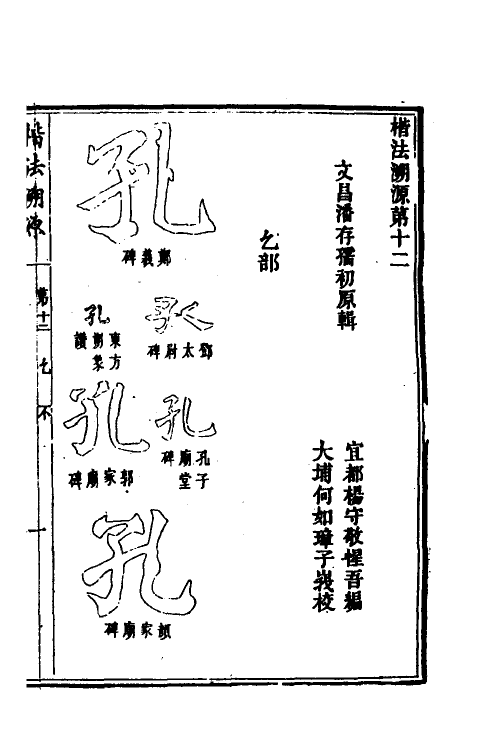 楷法溯源第十二
文昌潘存孺初原輯
宜都楊守敬惺吾編
大埔何如璋子峩校
乞部
孔
鄭羲碑
孔
鄧太尉碑
孔
東方朔畫贊
孔
孔子廟堂碑
孔
郭家廟碑
孔
顏家廟碑
楷法溯源
第十二
不
一